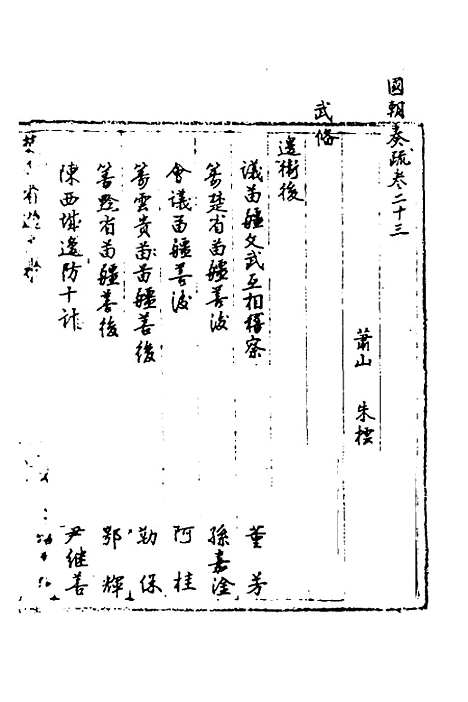 國朝奏疏卷二十三
蕭山 朱橒
武備
邊衛後
議苗疆文武互相稽察 董芳
籌楚省苗疆善後 孫嘉淦
會議苗疆善後 阿桂
籌雲貴苗苗疆善後 勒保
籌黔省苗疆善後 鄂輝
陳西域邊防十計 尹繼善